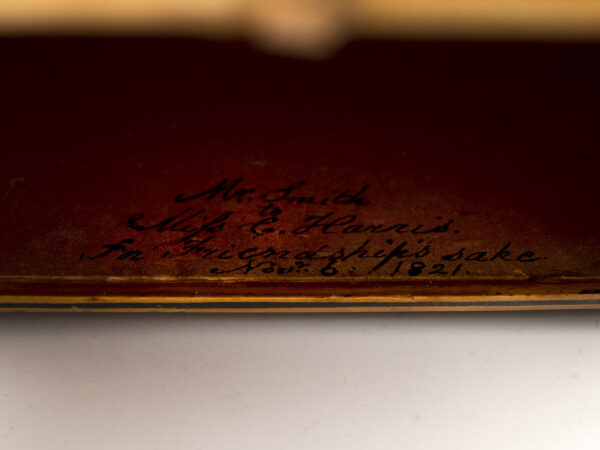 Mr. Smith
to
Miss E. Harris.
In Friendship's sake
Nov. 6: 1821.